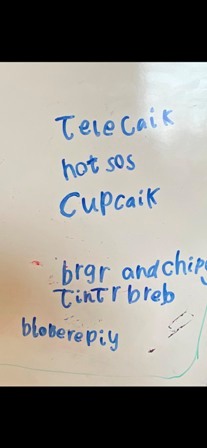 Telecaik
hot sos
Cupcaik
brgr and chips
tintr breb
bloberepiy